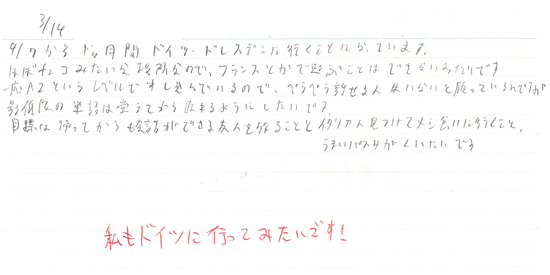 3/14
9/7から ドイツ・ドレスデンに行くことになっています。
ほぼチェコみたいな場所なので、フランスとかで遊ぶことはできないみたいです
一応A2というレベルで申し込んでいるので、ペラペラ話せる人はいないと思っているんですが
の単語は覚えてから にしたいです。
目標は 帰ってからも会話ができる友人を作ることと イタリア人見つけてメシ食いに行くこと。
うまいパスタがくいたいです
私もドイツに行ってみたいです!